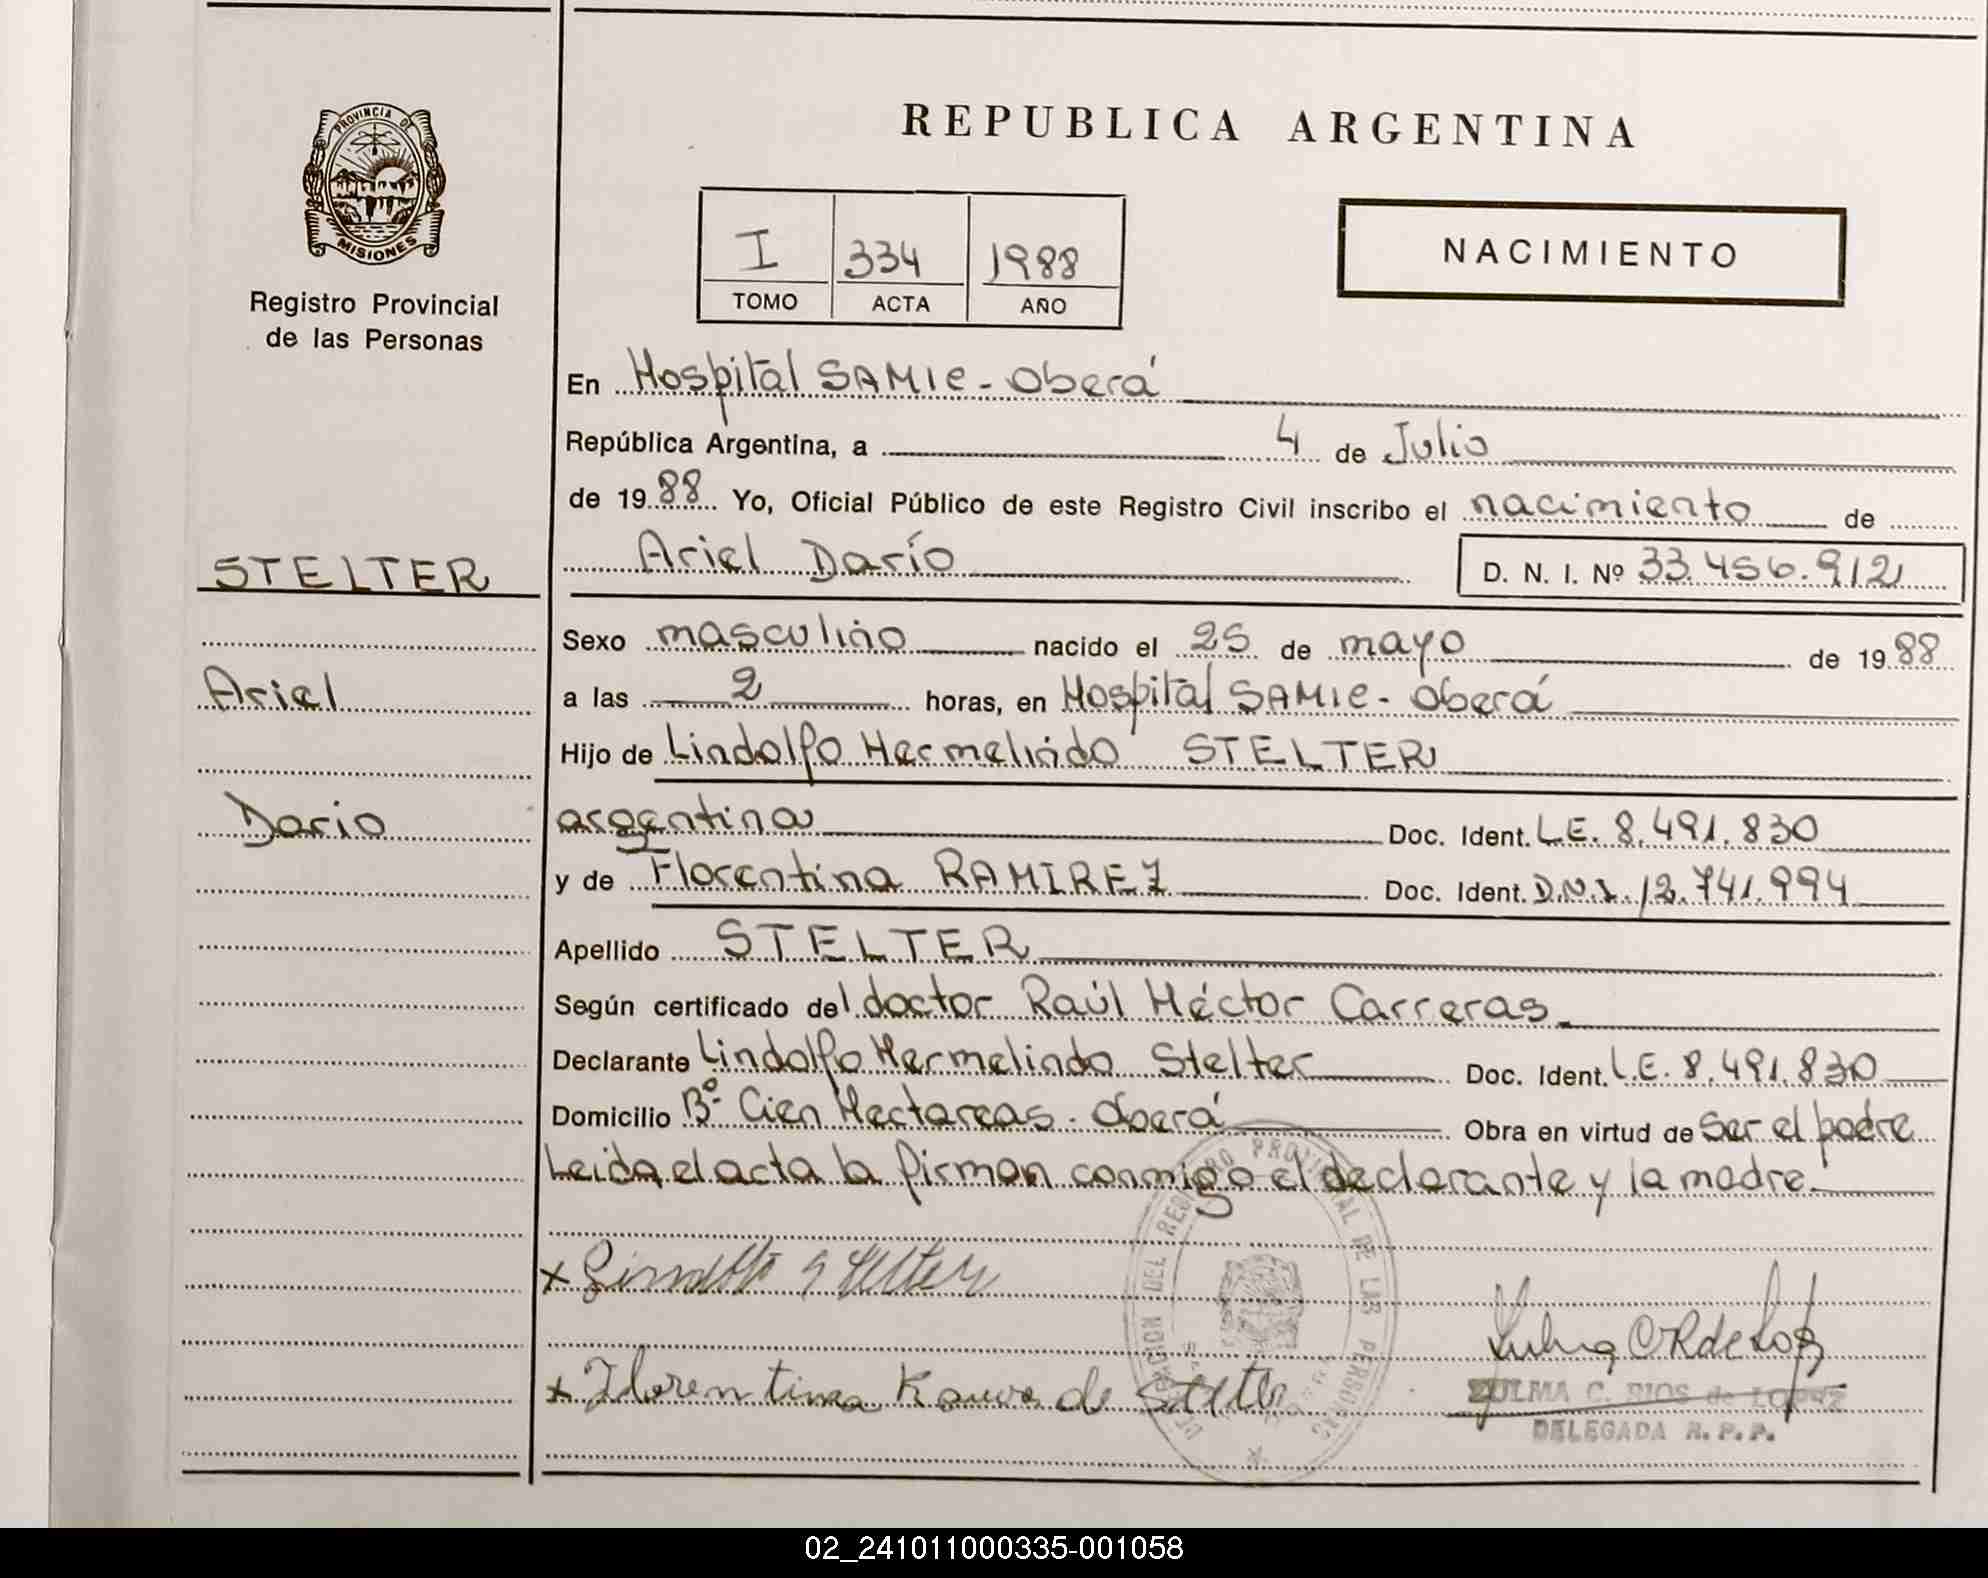 PROVINCIA DE
MISIONES
Registro Provincial
de las Personas
STELTER
Ariel
Dario
REPUBLICA ARGENTINA
I 334 1988
TOMO ACTA AÑO
NACIMIENTO
En Hospital SAMIC - Oberá
República Argentina, a 4 de Julio
de 1988 Yo, Oficial Público de este Registro Civil inscribo el nacimiento de
Ariel Darío D. N. I. Nº 33.456.912
Sexo masculino nacido el 25 de mayo de 1988
a las 2 horas, en Hospital SAMIC - Oberá
Hijo de Lindolfo Hermelindo STELTER
argentina Doc. Ident. L.E. 8.491.830
y de Florentina RAMIREZ Doc. Ident. D.N.I. 12.741.994
Apellido STELTER
Según certificado del doctor Raúl Héctor Carreras
Declarante Lindolfo Hermelindo Stelter Doc. Ident. L.E. 8.491.830
Domicilio Bº Cien Hectareas - Oberá Obra en virtud de ser el padre
Leida el acta la firman conmigo el declarante y la madre.
DEL REGISTRO PROVINCIAL DE LAS PERSONAS
x Stelter
x Florentina de Stelter
ZULMA C. RIOS de LOPEZ
DELEGADA R. P. P.
02_241011000335-001058